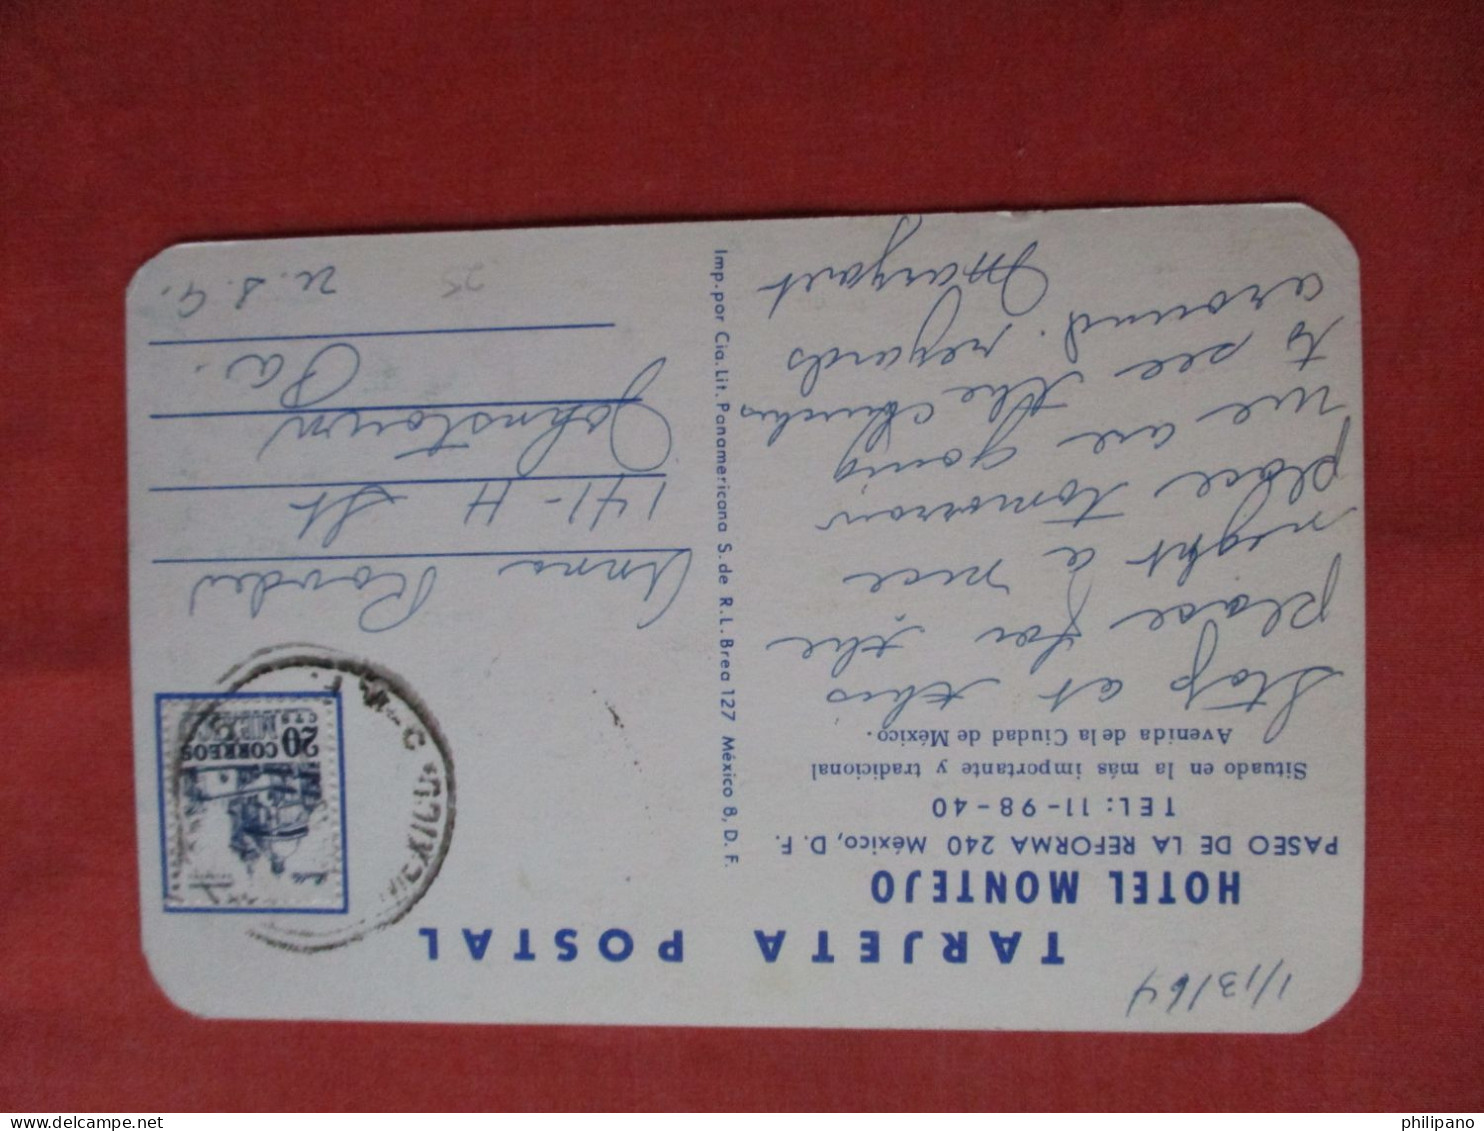 1/13/64
TARJETA POSTAL
HOTEL MONTEJO
PASEO DE LA REFORMA 240 México, D. F.
TEL: 11-98-40
Situado en la más importante y tradicional
Avenida de la Ciudad de México.
Stop at this
place for the
night a nice
place tomorrow
we are going
to see the churches
around. regards
Margaret
Imp. por Cia. Lit. Panamericana S. de R. L. Brea 127 México 8, D. F.
20 CTS
CORREOS
MEXICO
Anna
141-H St
Johnstown
Pa.
U.S.A.
25
philipano